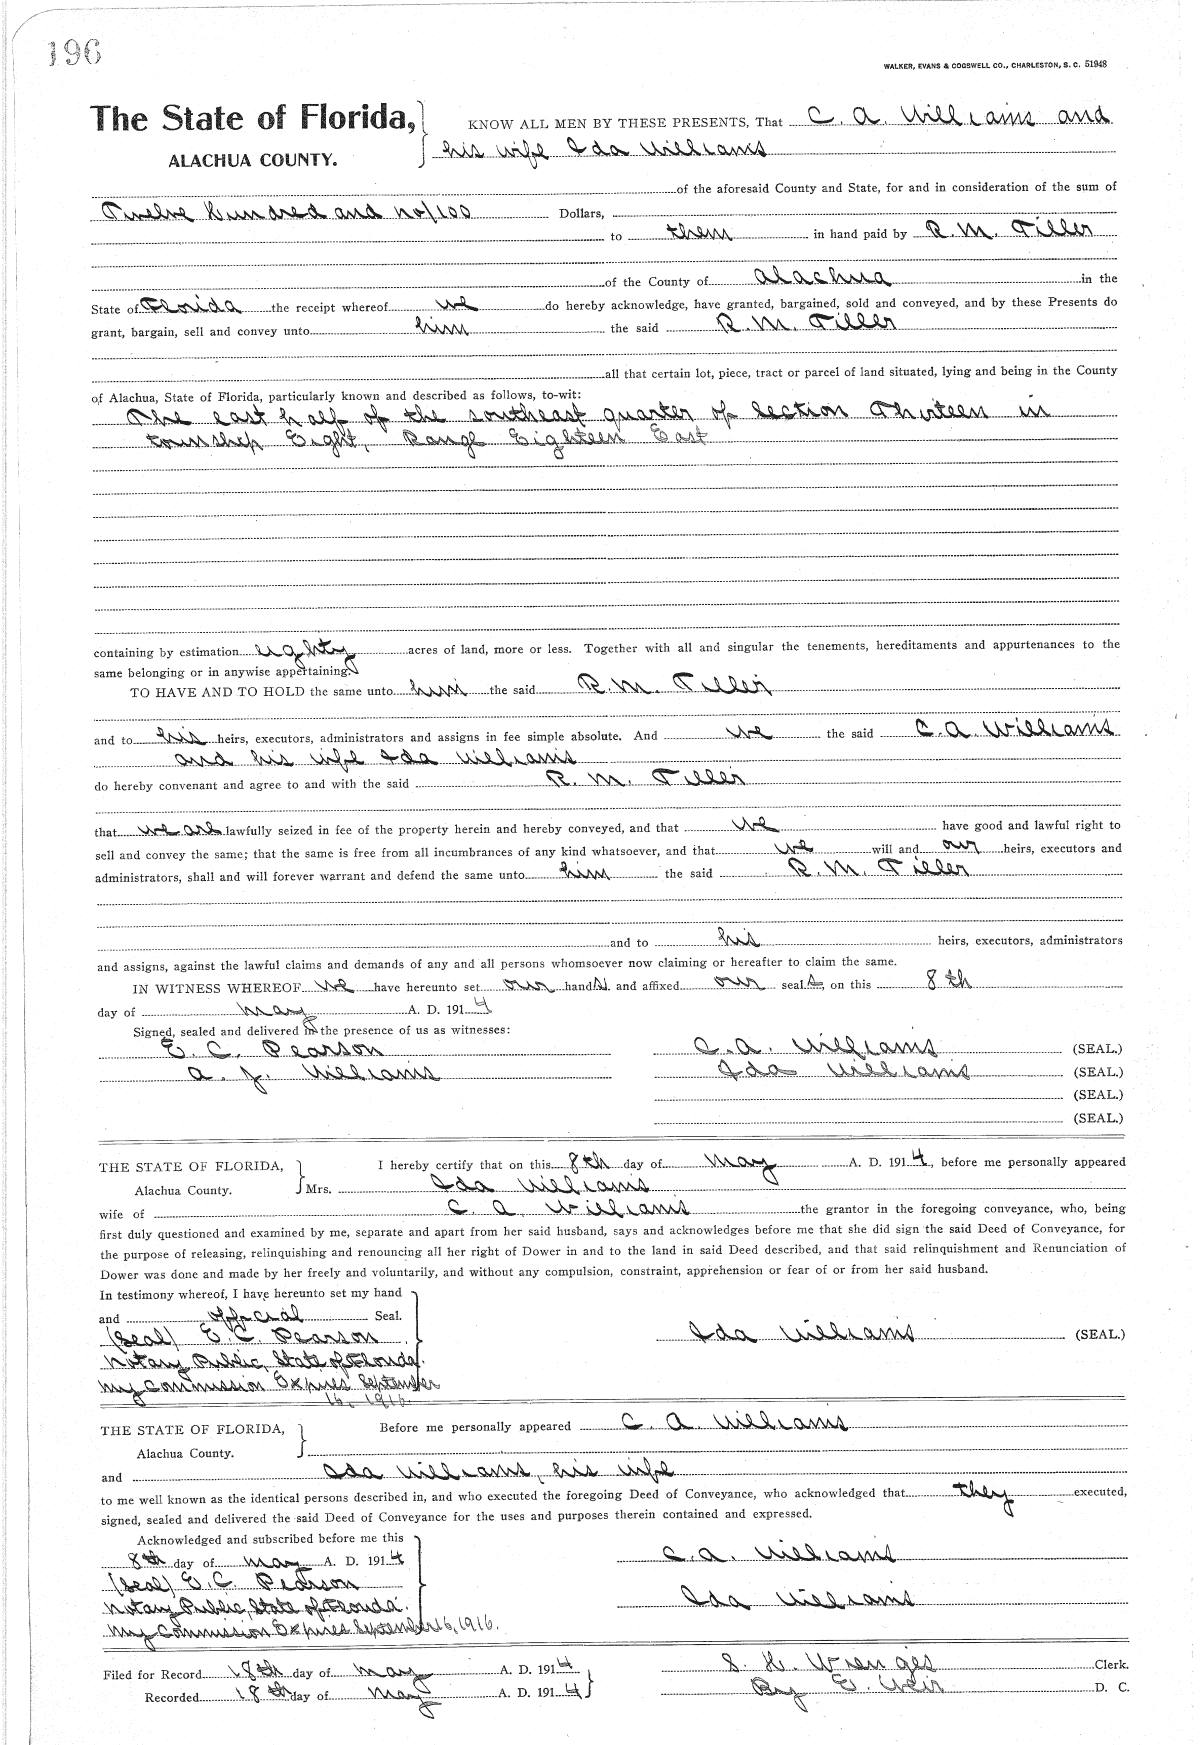 196
WALKER, EVANS & COGSWELL CO., CHARLESTON, S. C. 51948
The State of Florida, KNOW ALL MEN BY THESE PRESENTS, That C. A. Williams and
ALACHUA COUNTY. his wife Ida Williams
of the aforesaid County and State, for and in consideration of the sum of
Twelve Hundred and no/100 Dollars,
to them in hand paid by R. M. Tiller
of the County of Alachua in the
State of Florida the receipt whereof we do hereby acknowledge, have granted, bargained, sold and conveyed, and by these Presents do
grant, bargain, sell and convey unto him the said R. M. Tiller
all that certain lot, piece, tract or parcel of land situated, lying and being in the County
of Alachua, State of Florida, particularly known and described as follows, to-wit:
The east half of the southeast quarter of section Thirteen in
township Eight, Range Eighteen East
containing by estimation eighty acres of land, more or less. Together with all and singular the tenements, hereditaments and appurtenances to the
same belonging or in anywise appertaining.
TO HAVE AND TO HOLD the same unto him the said R. M. Tiller
and to his heirs, executors, administrators and assigns in fee simple absolute. And we the said C. A. Williams
and his wife Ida Williams
do hereby convenant and agree to and with the said R. M. Tiller
that we are lawfully seized in fee of the property herein and hereby conveyed, and that we have good and lawful right to
sell and convey the same; that the same is free from all incumbrances of any kind whatsoever, and that we will and our heirs, executors and
administrators, shall and will forever warrant and defend the same unto him the said R. M. Tiller
and to his heirs, executors, administrators
and assigns, against the lawful claims and demands of any and all persons whomsoever now claiming or hereafter to claim the same.
IN WITNESS WHEREOF we have hereunto set our hands and affixed our seals, on this 8th
day of May A. D. 1914
Signed, sealed and delivered in the presence of us as witnesses:
E. C. Pearson C. A. Williams (SEAL.)
A. J. Williams Ida Williams (SEAL.)
(SEAL.)
(SEAL.)
THE STATE OF FLORIDA, I hereby certify that on this 8th day of May A. D. 1914, before me personally appeared
Alachua County. Mrs. Ida Williams
wife of C. A. Williams the grantor in the foregoing conveyance, who, being
first duly questioned and examined by me, separate and apart from her said husband, says and acknowledges before me that she did sign the said Deed of Conveyance, for
the purpose of releasing, relinquishing and renouncing all her right of Dower in and to the land in said Deed described, and that said relinquishment and Renunciation of
Dower was done and made by her freely and voluntarily, and without any compulsion, constraint, apprehension or fear of or from her said husband.
In testimony whereof, I have hereunto set my hand
and official Seal.
(Seal) E. C. Pearson Ida Williams (SEAL.)
Notary Public, State of Florida.
My Commission Expires September
16, 1916.
THE STATE OF FLORIDA, Before me personally appeared C. A. Williams
Alachua County.
and Ida Williams, his wife
to me well known as the identical persons described in, and who executed the foregoing Deed of Conveyance, who acknowledged that they executed,
signed, sealed and delivered the said Deed of Conveyance for the uses and purposes therein contained and expressed.
Acknowledged and subscribed before me this
8th day of May A. D. 1914 C. A. Williams
(Seal) E. C. Pearson
Notary Public, State of Florida. Ida Williams
My Commission Expires September 16, 1916.
Filed for Record 18th day of May A. D. 1914 S. H. Wienges Clerk.
Recorded 18th day of May A. D. 1914 By E. Weir D. C.